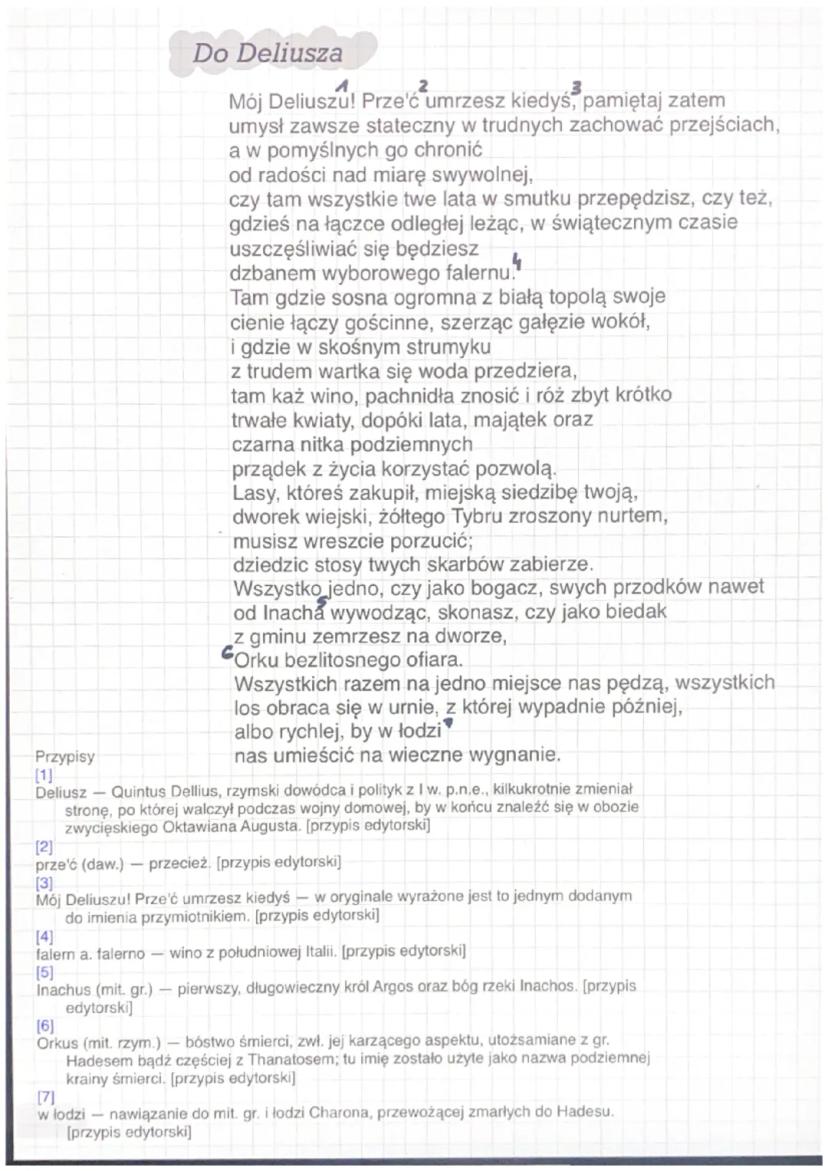 Do Deliusza
1 2 3
Mój Deliuszu! Prze'ć umrzesz kiedyś, pamiętaj zatem
umysł zawsze stateczny w trudnych zachować przejściach,
a w pomyślnych go chronić
od radości nad miarę swywolnej,
czy tam wszystkie twe lata w smutku przepędzisz, czy też,
gdzieś na łączce odległej leżąc, w świątecznym czasie
uszczęśliwiać się będziesz
dzbanem wyborowego falernu. 4
Tam gdzie sosna ogromna z białą topolą swoje
cienie łączy gościnne, szerząc gałęzie wokół,
i gdzie w skośnym strumyku
z trudem wartka się woda przedziera,
tam każ wino, pachnidła znosić i róż zbyt krótko
trwałe kwiaty, dopóki lata, majątek oraz
czarna nitka podziemnych
prządek z życia korzystać pozwolą.
Lasy, któreś zakupił, miejską siedzibę twoją,
dworek wiejski, żółtego Tybru zroszony nurtem,
musisz wreszcie porzucić;
dziedzic stosy twych skarbów zabierze.
Wszystko jedno, czy jako bogacz, swych przodków nawet
od Inacha 5 wywodząc, skonasz, czy jako biedak
z gminu zemrzesz na dworze,
6 Orku bezlitosnego ofiara.
Wszystkich razem na jedno miejsce nas pędzą, wszystkich
los obraca się w urnie, z której wypadnie później,
albo rychlej, by w łodzi 7
nas umieścić na wieczne wygnanie.
Przypisy
[1]
Deliusz — Quintus Dellius, rzymski dowódca i polityk z I w. p.n.e., kilkukrotnie zmieniał
stronę, po której walczył podczas wojny domowej, by w końcu znaleźć się w obozie
zwycięskiego Oktawiana Augusta. [przypis edytorski]
[2]
prze'ć (daw.) — przecież. [przypis edytorski]
[3]
Mój Deliuszu! Prze'ć umrzesz kiedyś — w oryginale wyrażone jest to jednym dodanym
do imienia przymiotnikiem. [przypis edytorski]
[4]
falern a. falerno — wino z południowej Italii. [przypis edytorski]
[5]
Inachus (mit. gr.) — pierwszy, długowieczny król Argos oraz bóg rzeki Inachos. [przypis
edytorski]
[6]
Orkus (mit. rzym.) — bóstwo śmierci, zwł. jej karzącego aspektu, utożsamiane z gr.
Hadesem bądź częściej z Thanatosem; tu imię zostało użyte jako nazwa podziemnej
krainy śmierci. [przypis edytorski]
[7]
w łodzi — nawiązanie do mit. gr. i łodzi Charona, przewożącej zmarłych do Hadesu.
[przypis edytorski]